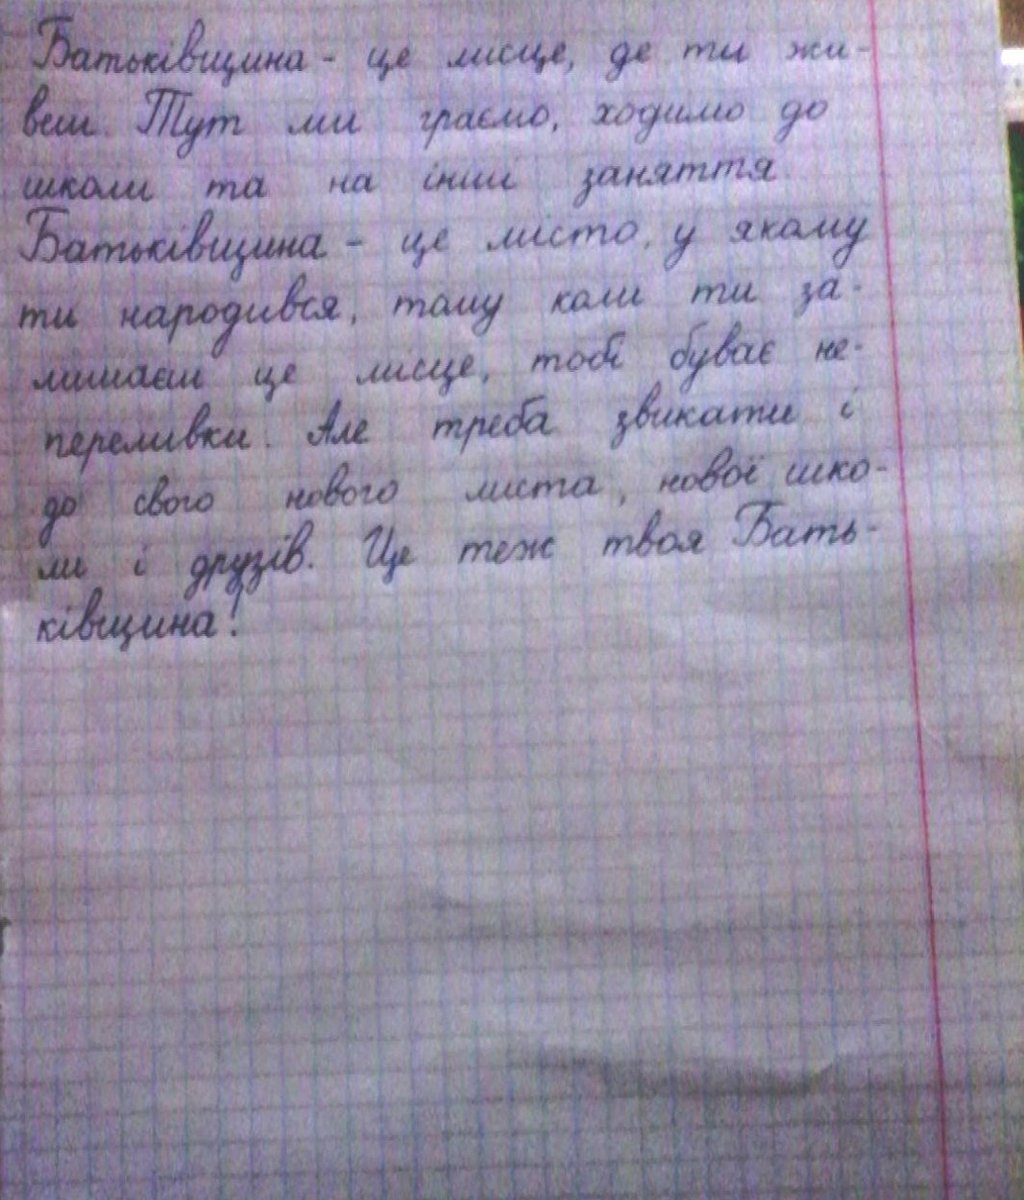 Батьківщина - це місце, де ти жи-
веш. Тут ми граємо, ходимо до
школи та на інші заняття.
Батьківщина - це місто, у якому
ти народився, тому коли ти за-
лишаєш це місце, тобі буває не-
переливки. Але треба звикати і
до свого нового міста, нової шко-
ли і друзів. Це теж твоя Бать-
ківщина!